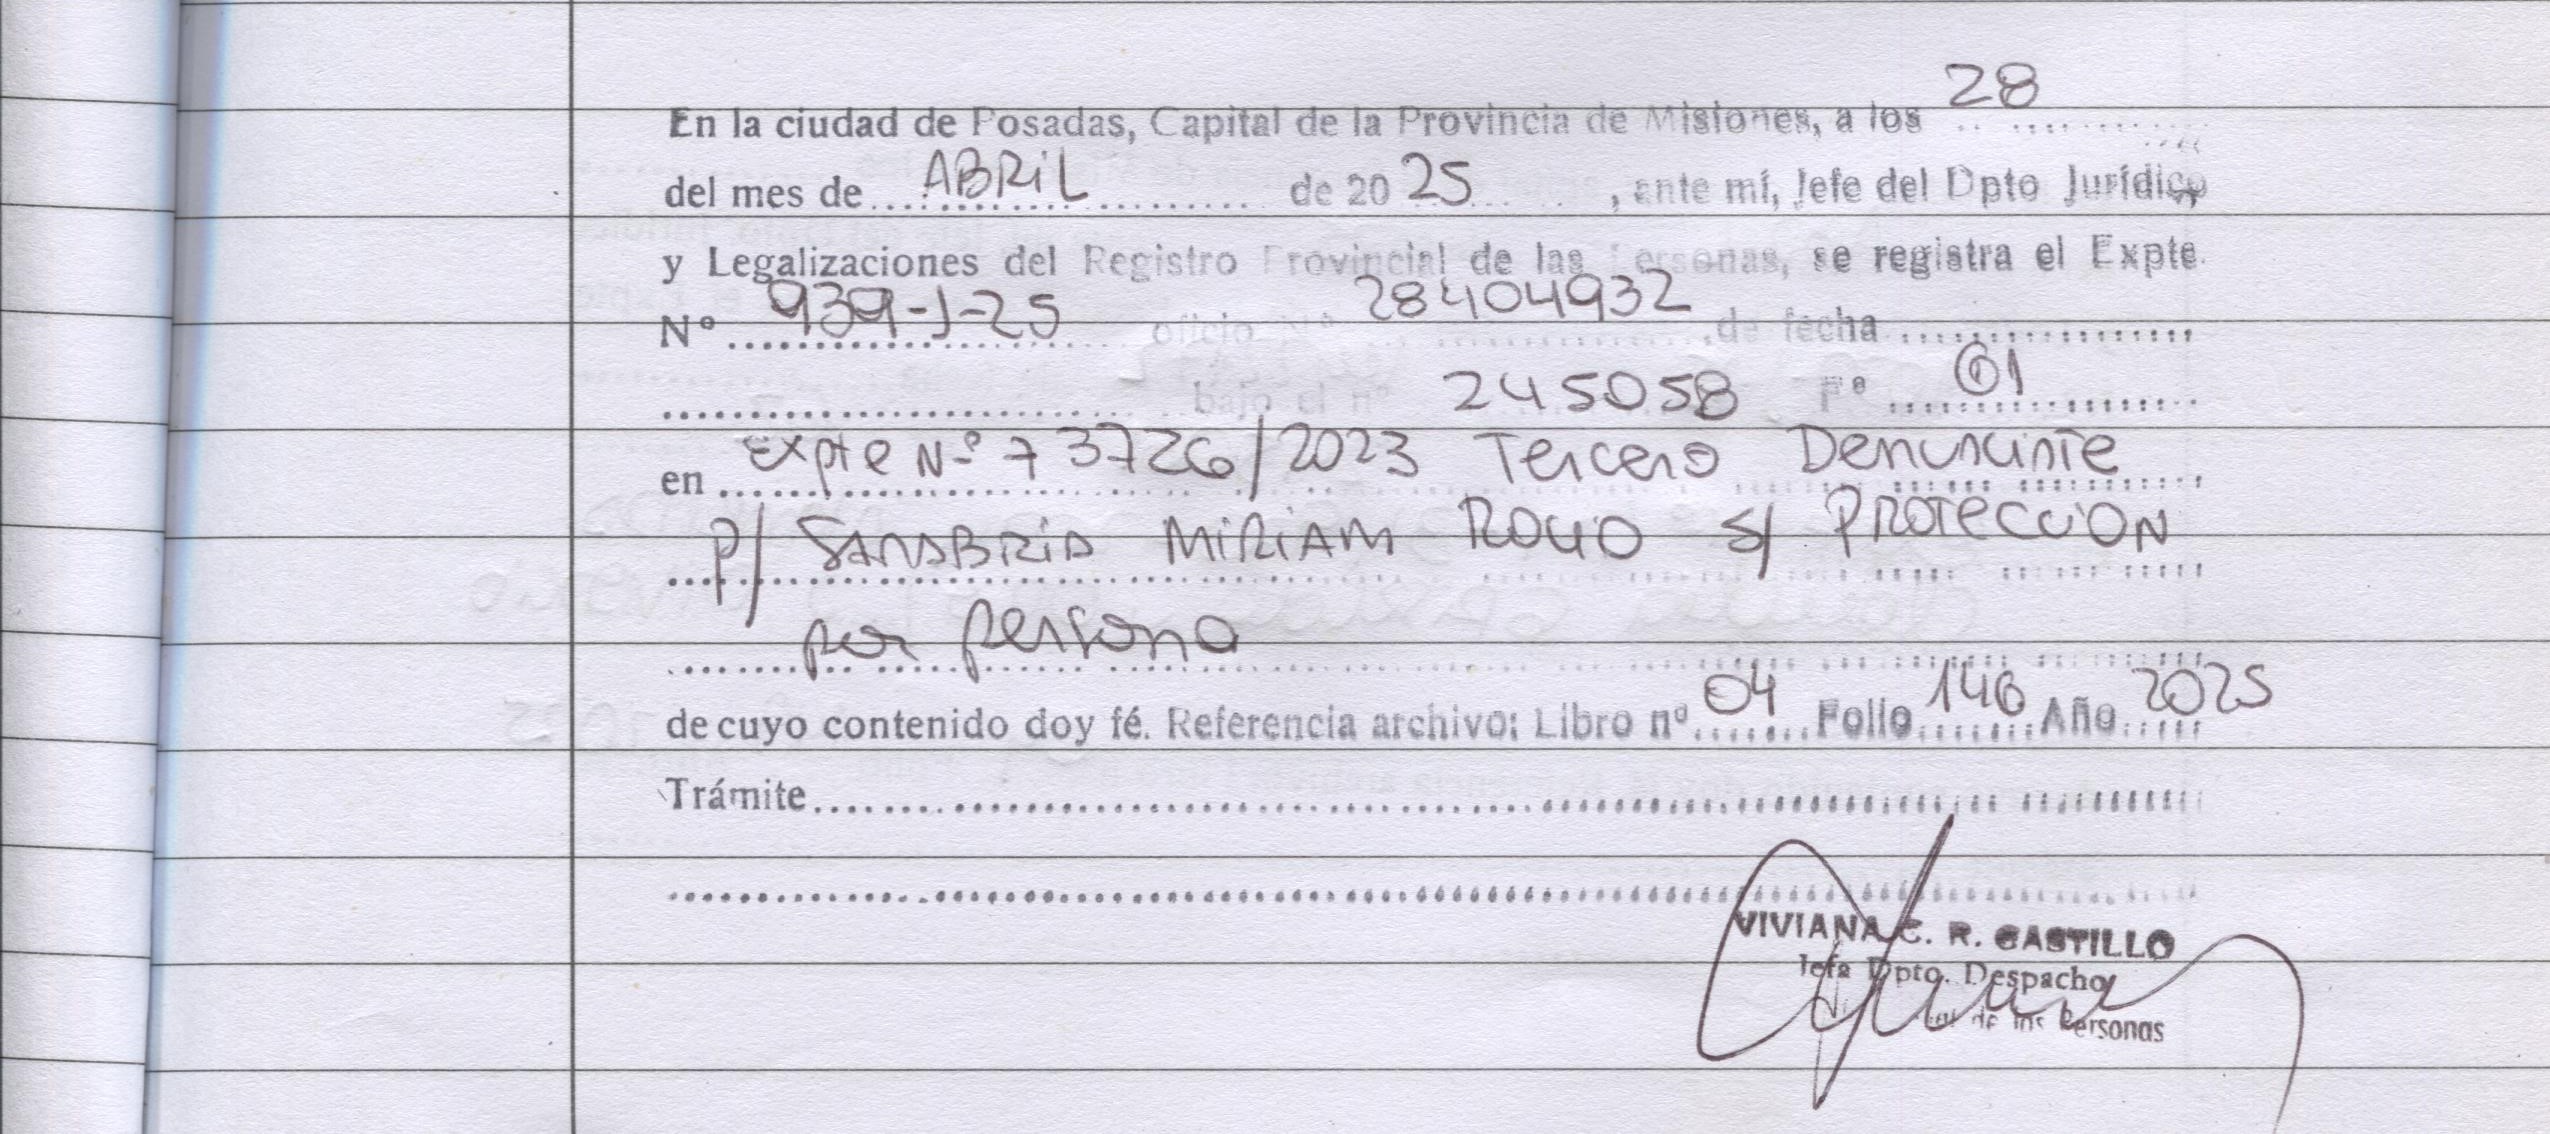 En la ciudad de Posadas, Capital de la Provincia de Misiones, a los 28
del mes de ABRIL de 20 25, ante mí, Jefe del Dpto Jurídico
y Legalizaciones del Registro Provincial de las Personas, se registra el Expte.
Nº 939-J-25 oficio Nº 28404932, de fecha
bajo el nº 245058 Fº 61
en Expte Nº 73726/2023 Tercero Denunciante
p/ SANABRIA MIRIAM ROCIO s/ PROTECCION
por persona
de cuyo contenido doy fé. Referencia archivo: Libro nº 04 Folio 146 Año 2025
Trámite
VIVIANA C. R. CASTILLO
Jefa Dpto. Despacho
de las Personas